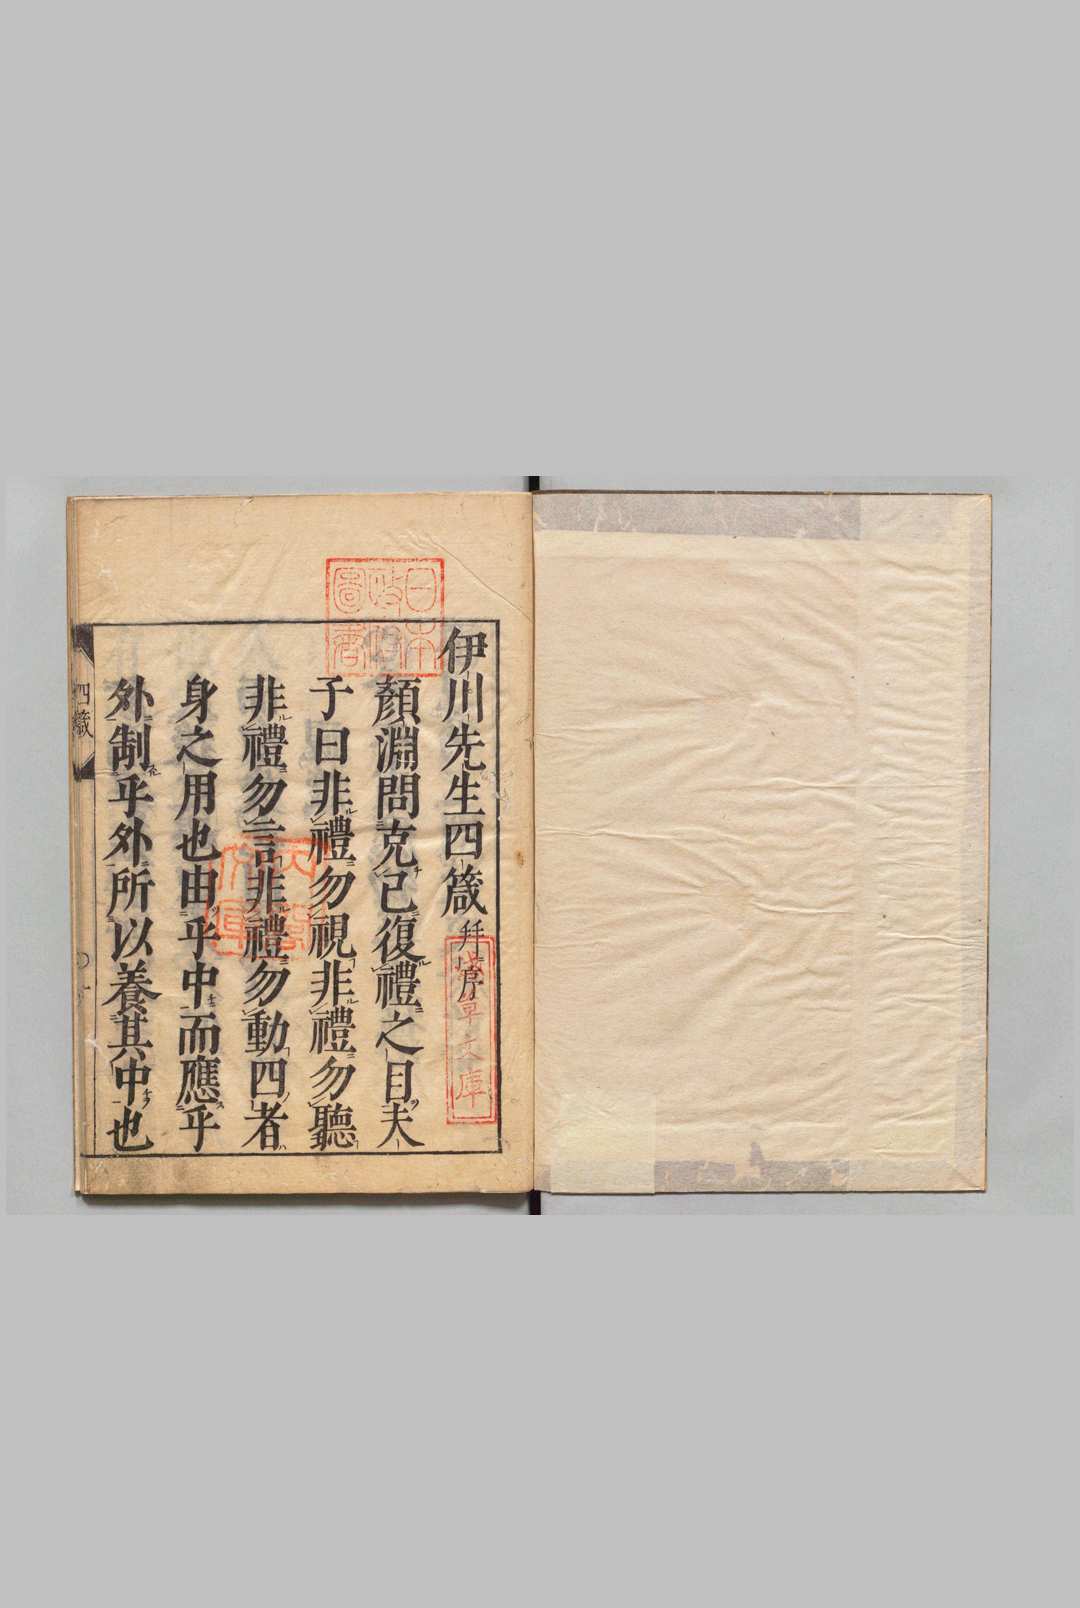 伊川先生四箴并序
顏淵問克己復禮之目夫
子曰非禮勿視非禮勿聽
非禮勿言非禮勿動四者
身之用也由乎中而應乎
外制乎外所以養其中也
四箴
一
日本
政府
圖書
淺草文庫